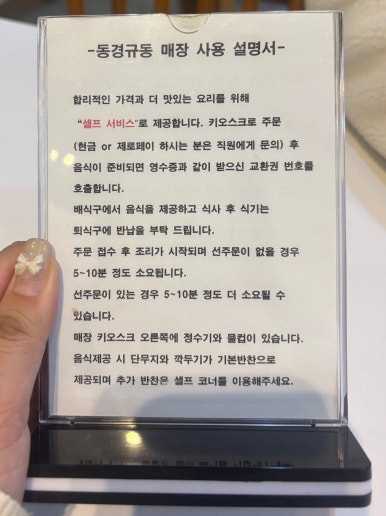 -동경규동 매장 사용 설명서-
합리적인 가격과 더 맛있는 요리를 위해
"셀프 서비스"로 제공합니다. 키오스크로 주문
(현금 or 제로페이 하시는 분은 직원에게 문의) 후
음식이 준비되면 영수증과 같이 받으신 교환권 번호를
호출합니다.
배식구에서 음식을 제공하고 식사 후 식기는
퇴식구에 반납을 부탁 드립니다.
주문 접수 후 조리가 시작되며 선주문이 없을 경우
5~10분 정도 소요됩니다.
선주문이 있는 경우 5~10분 정도 더 소요될 수
있습니다.
매장 키오스크 오른쪽에 정수기와 물컵이 있습니다.
음식제공 시 단무지와 깍두기가 기본반찬으로
제공되며 추가 반찬은 셀프 코너를 이용해주세요.